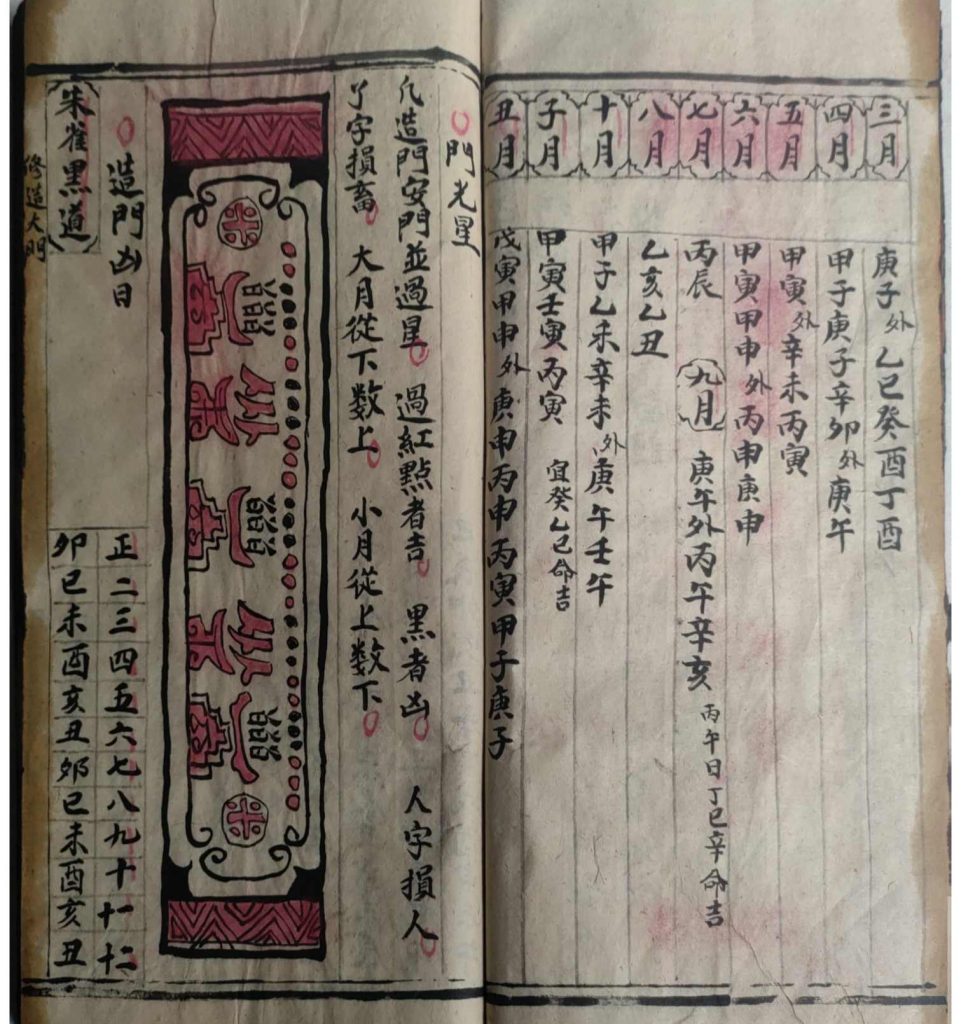 三月
庚子外乙巳癸酉丁酉
四月
甲子庚子辛卯外庚午
五月
甲寅外辛未丙寅
六月
甲寅甲申外丙申庚申
七月
丙辰
九月
庚午外丙午辛亥
丙午日丁巳辛命吉
八月
乙亥乙丑
十月
甲子乙未辛未外庚午壬午
子月
甲寅壬寅丙寅
宜癸乙己命吉
丑月
戊寅甲申外庚申丙申丙寅甲子庚子
門光星
凢造門安門並過星 過紅點者吉 黑者凶 人字損人
丫字損畜 大月從下数上 小月從上数下
造門凶日
正二三四五六七八九十十一十二
朱雀黑道
卯巳未酉亥丑卯巳未酉亥丑
修造大門